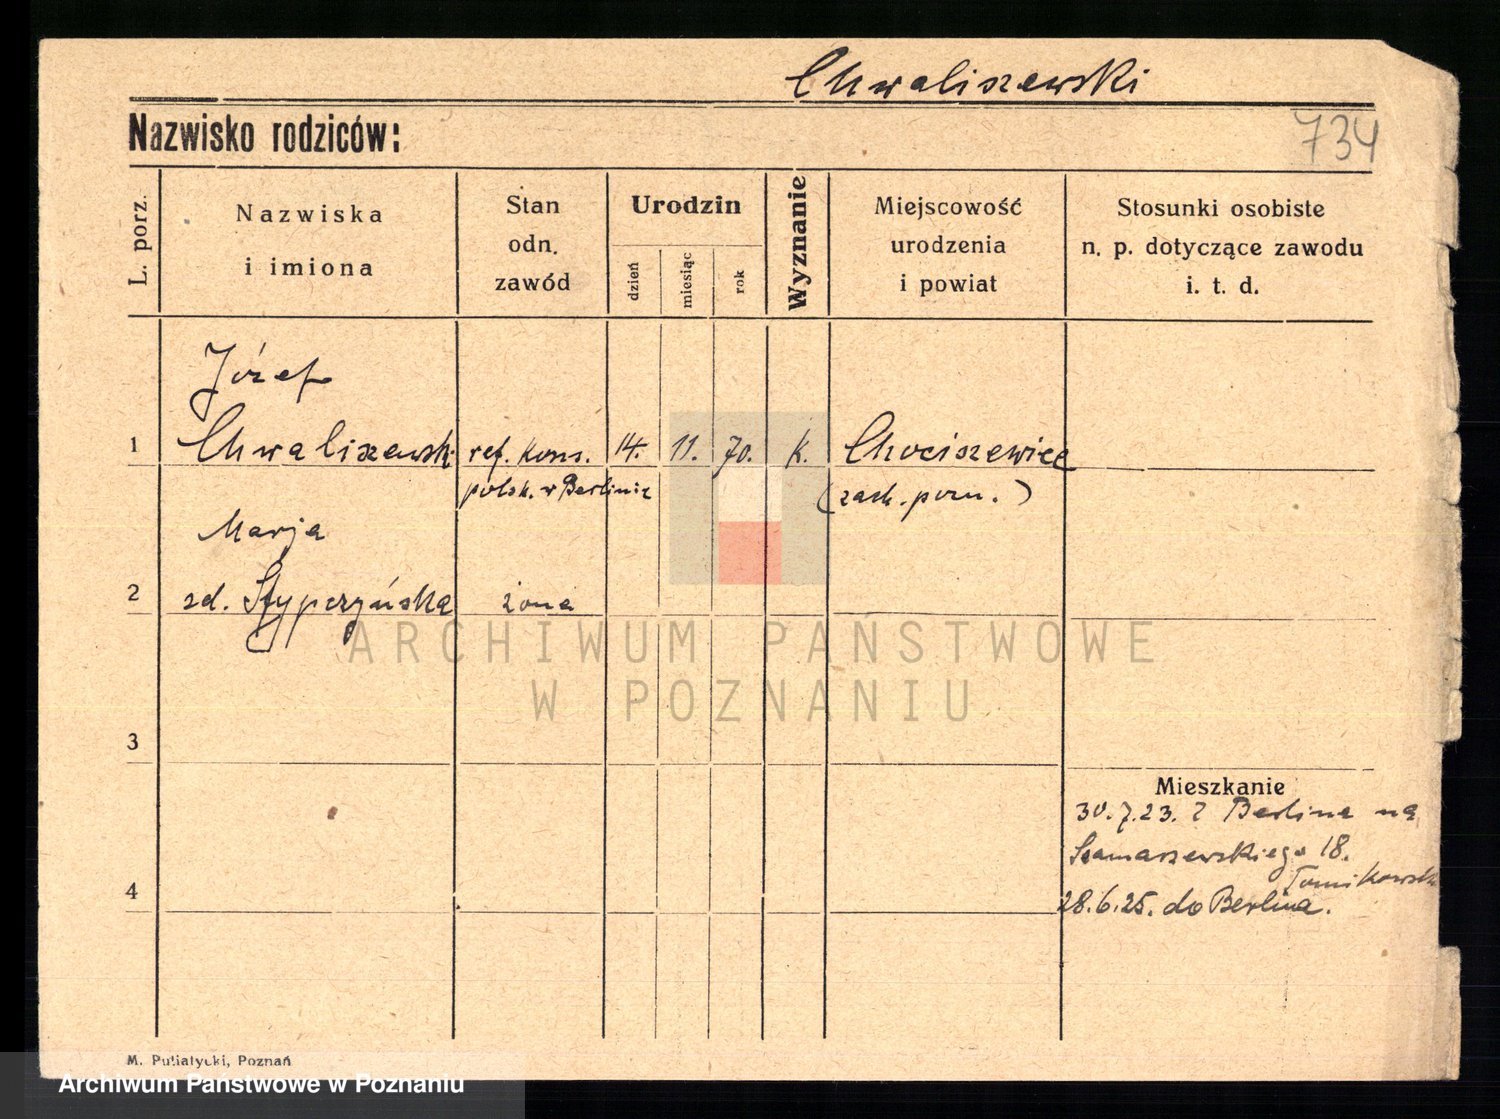 Chwaliszewski
Nazwisko rodziców:
734
L. porz.
Nazwiska
i imiona
Stan
odn.
zawód
Urodzin
dzień
miesiąc
rok
Wyznanie
Miejscowość
urodzenia
i powiat
Stosunki osobiste
n. p. dotyczące zawodu
i. t. d.
Józef
1 Chwaliszewski ref. kons. 14. 11. 70. k. Chociszewice
polsk. w Berlinie (zach. pozn.)
Marja
2 zd. Stypczyńska żona
ARCHIWUM PAŃSTWOWE
W POZNANIU
3
Mieszkanie
30.7.23. z Berlina na
Szamarzewskiego 18.
Tomikowsk
4
28.6.25. do Berlina.
M. Putiatycki, Poznań
Archiwum Państwowe w Poznaniu